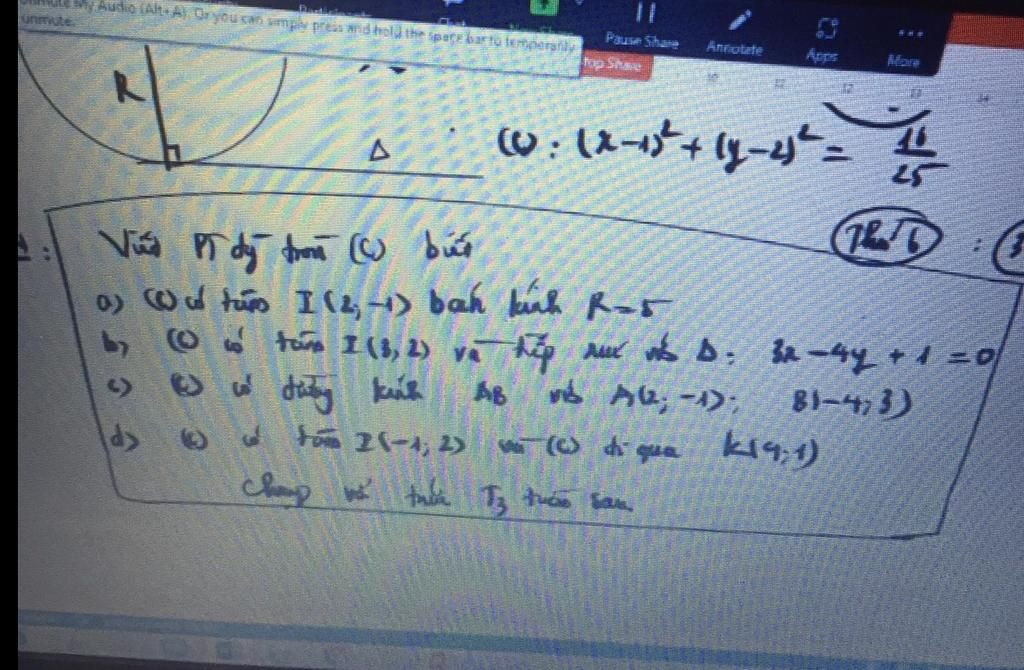 Unmute My Audio (Alt+A). Or you can simply press and hold the space bar to temporarily
unmute.
Pause Share
Annotate
Apps
More
Stop Share
10 11 12 13 14
R
Δ
(C): (x-1)² + (y-2)² = 16/25
Viết PT đg tròn (C) biết
a) (C) có tâm I(2; -1) bán kính R = 5
b) (C) có tâm I(3, 2) và tiếp xúc với Δ: 3x - 4y + 1 = 0
c) (C) có đường kính AB với A(2; -1); B(-4; 3)
d) (C) có tâm I(-1; 2) và (C) đi qua K(4; 1)
T3 tuần sau